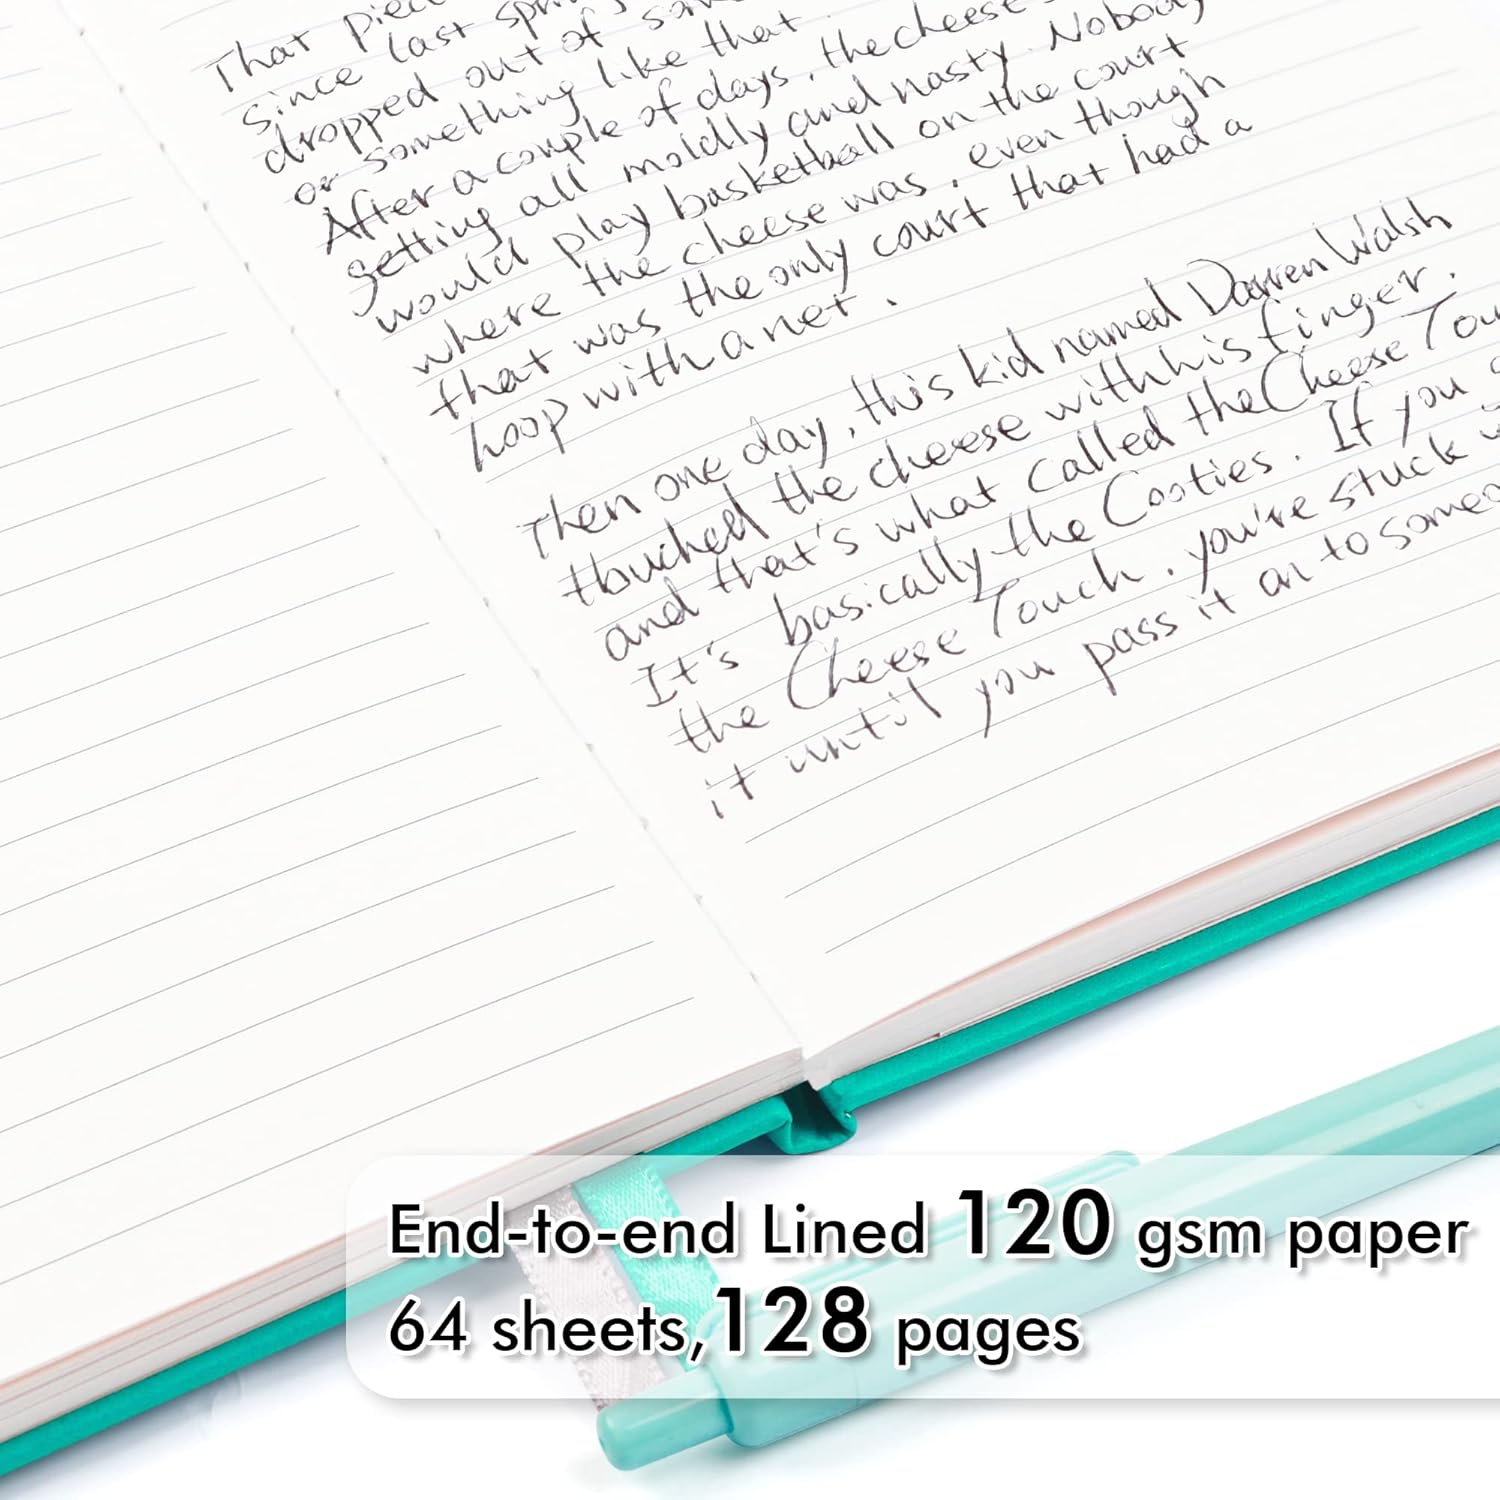 That piec
Since last spri
dropped out of
or something like that
After a couple of days, the cheese
getting all moldly and nasty. Nobody
would play basketball on the court
where the cheese was, even though
that was the only court that had a
hoop with a net.
Then one day, this kid named Darren Walsh
touched the cheese with his finger.
and that's what called the Cheese Tou
It's basically the Cooties. If you
the Cheese Touch, you're stuck
it until you pass it on to someo
End-to-end Lined 120 gsm paper
64 sheets,128 pages